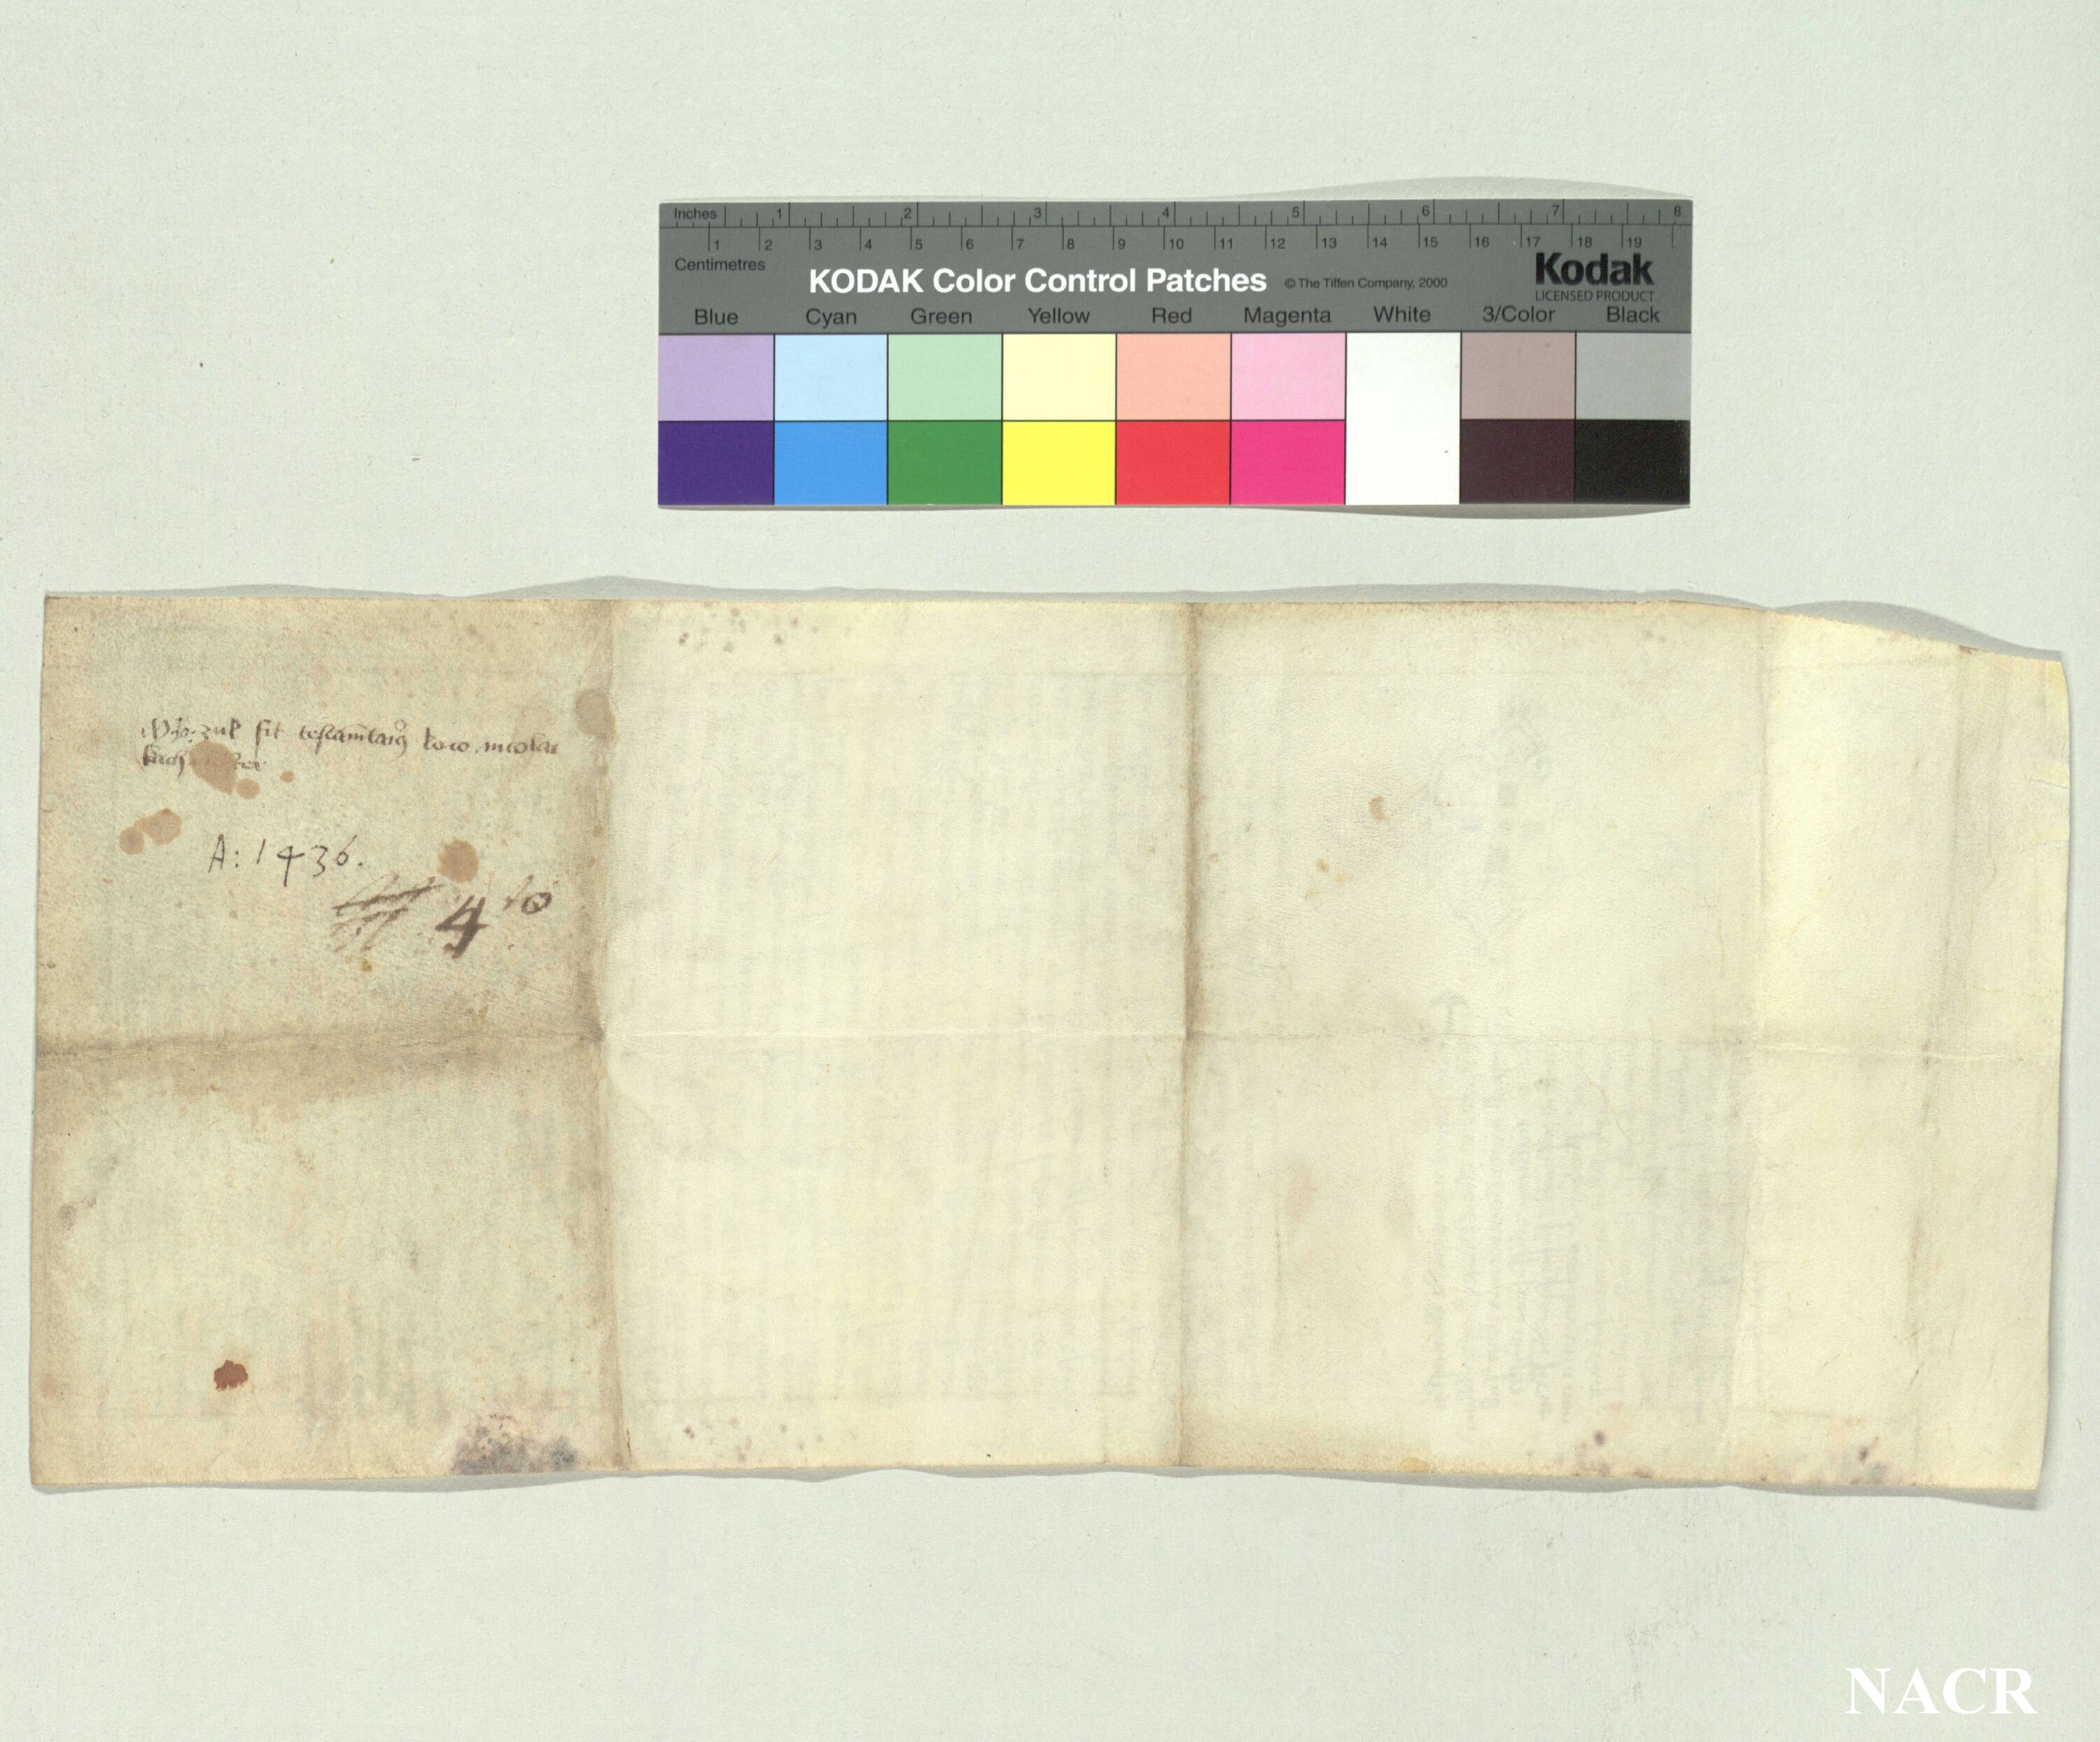 Inches 1 2 3 4 5 6 7 8
1 2 3 4 5 6 7 8 9 10 11 12 13 14 15 16 17 18 19
Centimetres
KODAK Color Control Patches © The Tiffen Company, 2000 Kodak
LICENSED PRODUCT
Blue Cyan Green Yellow Red Magenta White 3/Color Black
fit loco nicolai
A: 1436.
4to
NACR